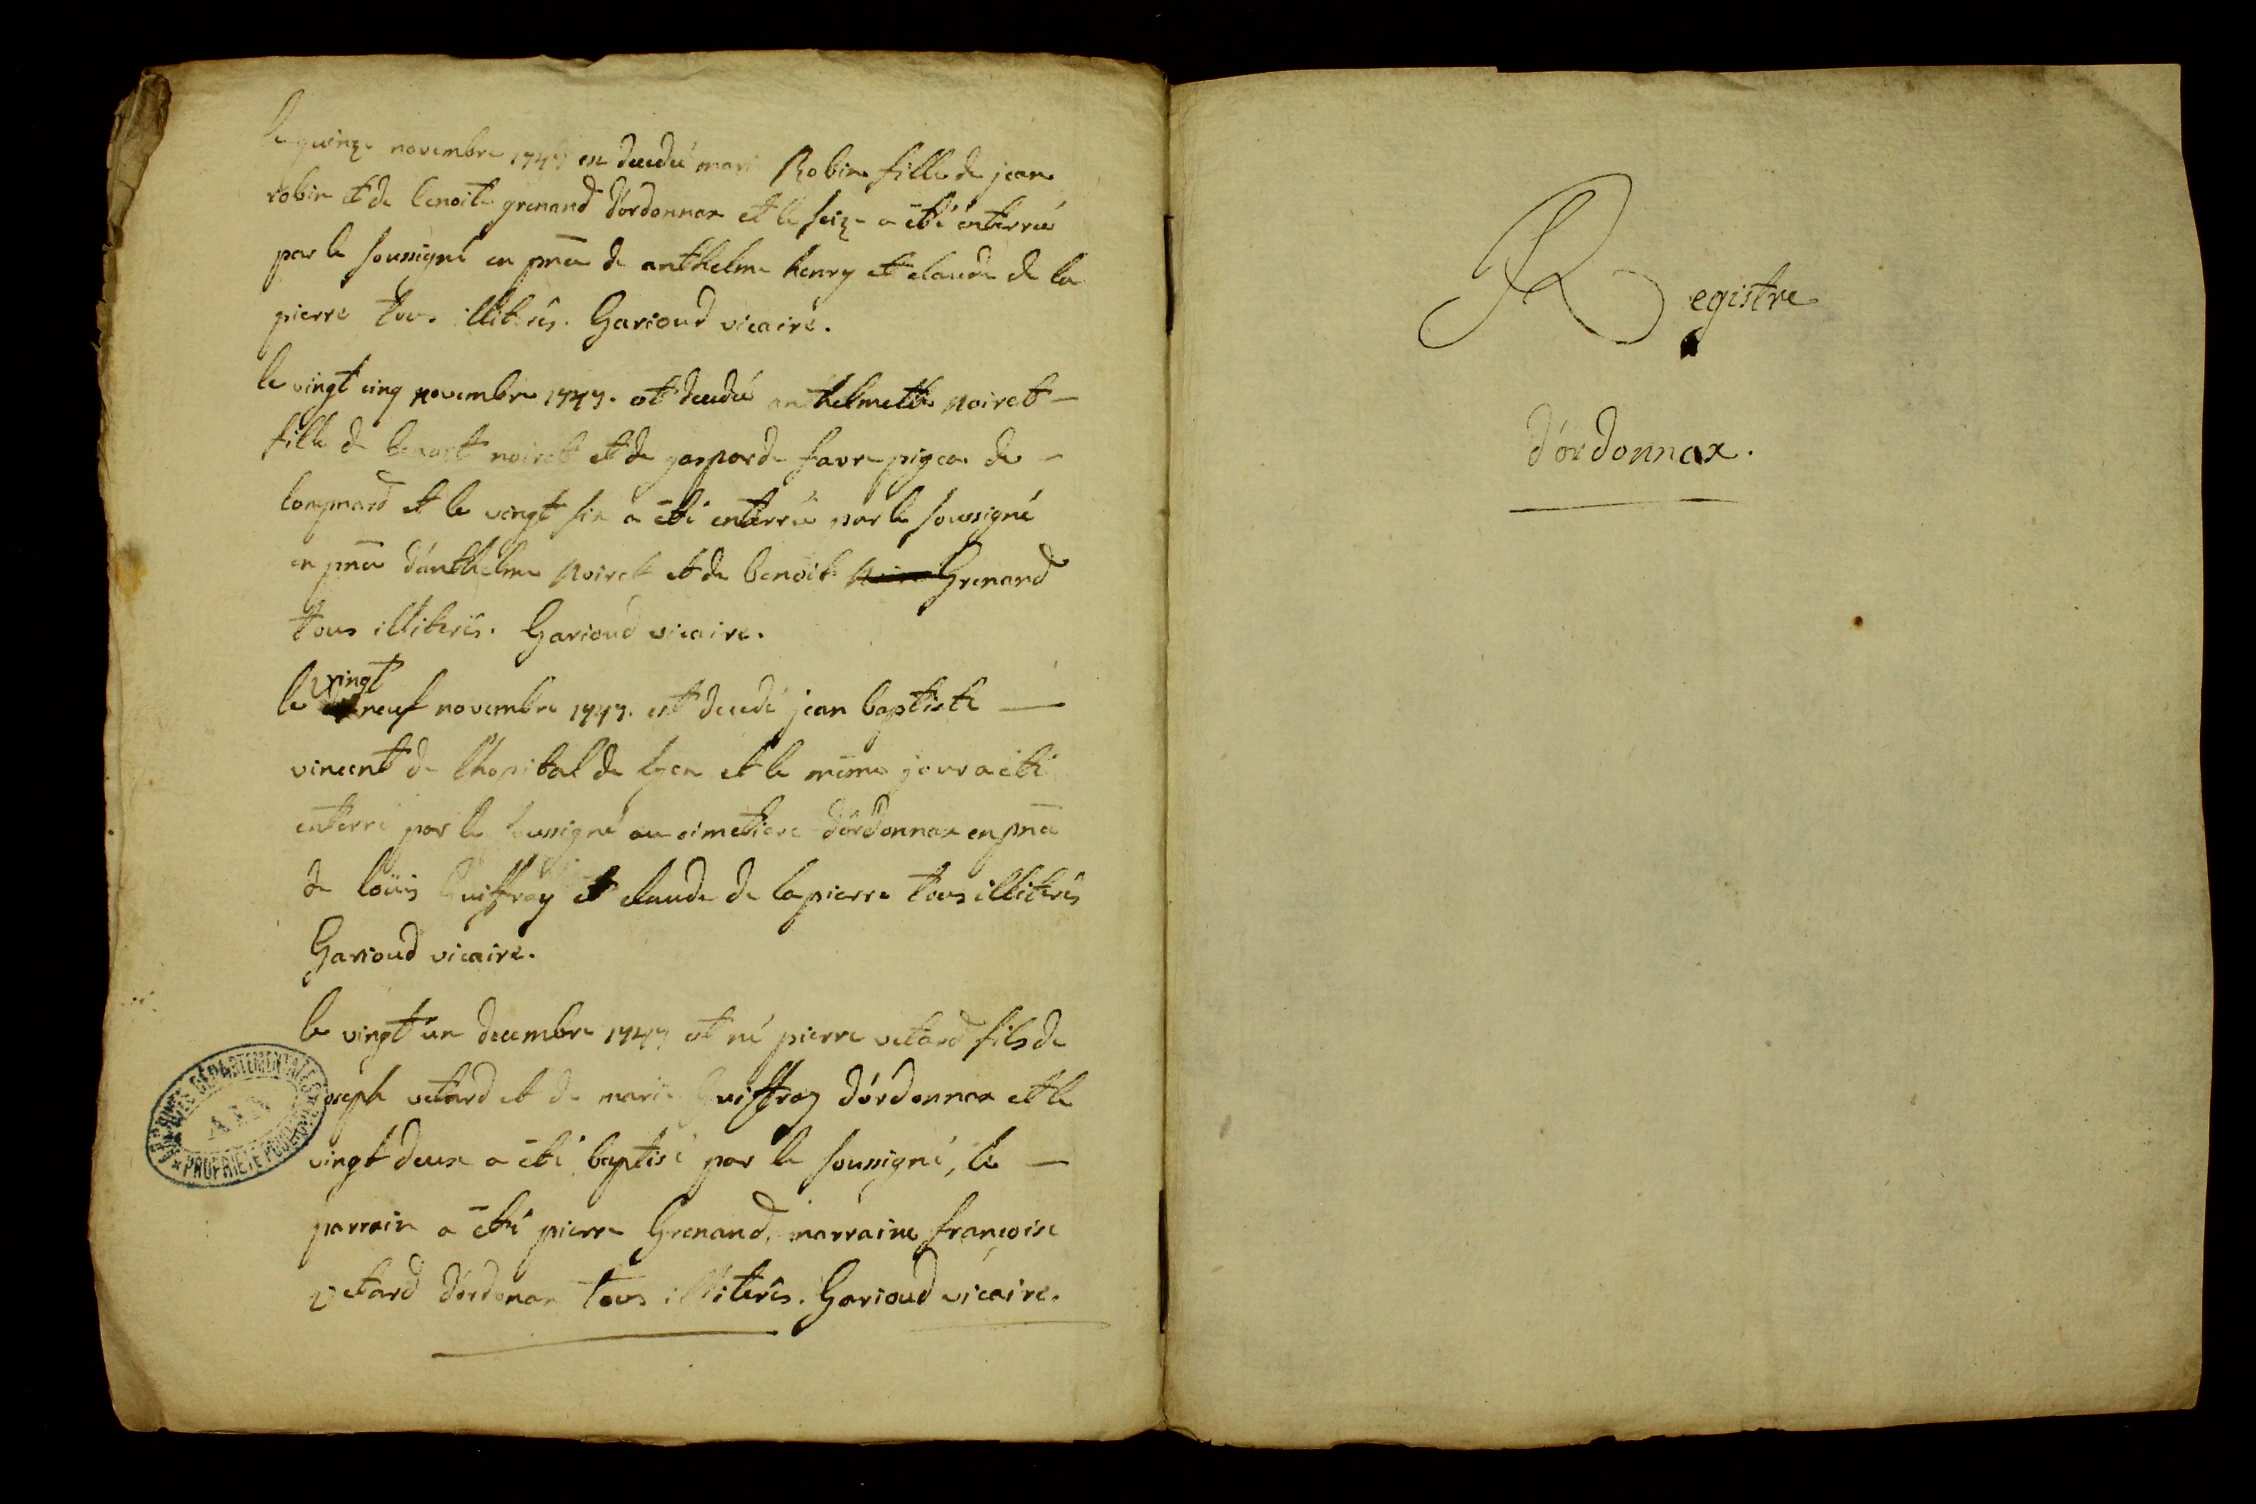 le quinze novembre 1747 est decedée marie Robin fille de jean
robin et de benoite grenand d'ordonnax et le seize a été enterrée
par le soussigné en pnce de anthelme henry et claude de la
pierre tous illiterés. Garioud vicaire.
le vingt cinq novembre 1747. est decedée anthelmette noiret
fille de benoit noiret et de gasparde favre pigeon de
longmard et le vingt six a été enterrée par le soussigné
en pnce d'anthelme noiret et de benoit Grenand
tous illiterés. Garioud vicaire.
le vingt neuf novembre 1747. est decedé jean baptiste
vincent de l'hopital de lyon et le même jour a été
enterré par le soussigné au cimetiere d'ordonnax en pnce
de loüis Guiffray et claude de la pierre tous illiterés
Garioud vicaire.
le vingt un decembre 1747 est né pierre vetard fils de
joseph vetard et de marie Guiffray d'ordonnax et le
vingt deux a été baptisé par le soussigné, le
parrain a été pierre Grenand, marraine françoise
vetard d'ordonax tous illiterés. Garioud vicaire.
ARCHIVES DÉPARTEMENTALES
AIN
PROPRIÉTÉ PUBLIQUE
Registre
d'ordonnax.